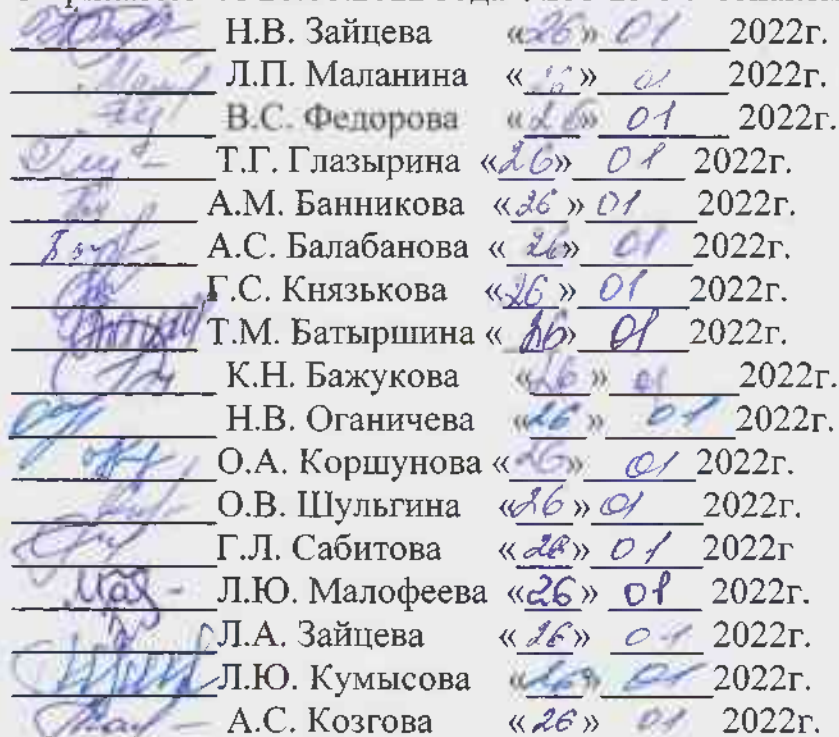 Н.В. Зайцева «26» 01 2022г.
Л.П. Маланина «26» 01 2022г.
В.С. Федорова «26» 01 2022г.
Т.Г. Глазырина «26» 01 2022г.
А.М. Банникова «26» 01 2022г.
А.С. Балабанова «26» 01 2022г.
Г.С. Князькова «26» 01 2022г.
Т.М. Батыршина «26» 01 2022г.
К.Н. Бажукова «26» 01 2022г.
Н.В. Оганичева «26» 01 2022г.
О.А. Коршунова «26» 01 2022г.
О.В. Шульгина «26» 01 2022г.
Г.Л. Сабитова «26» 01 2022г
Л.Ю. Малофеева «26» 01 2022г.
Л.А. Зайцева «26» 01 2022г.
Л.Ю. Кумысова «26» 01 2022г.
А.С. Козгова «26» 01 2022г.